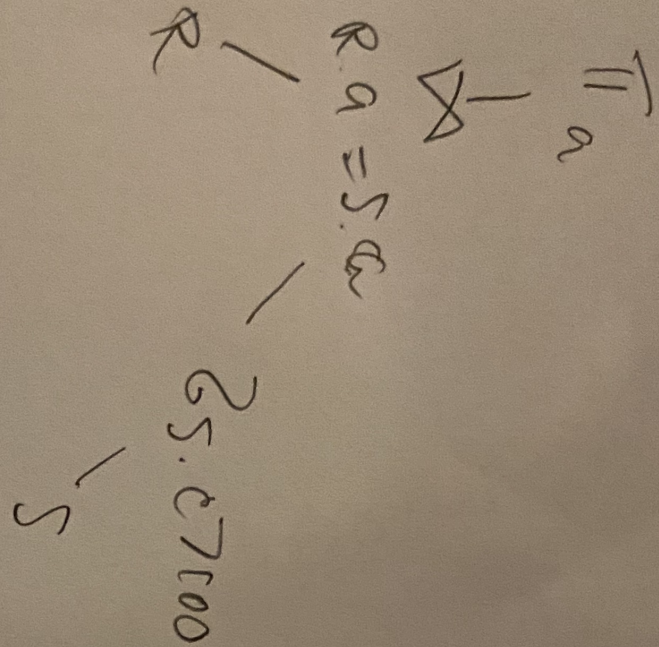 π a
⋈
R.a = S.a
R
σ S.c>100
S